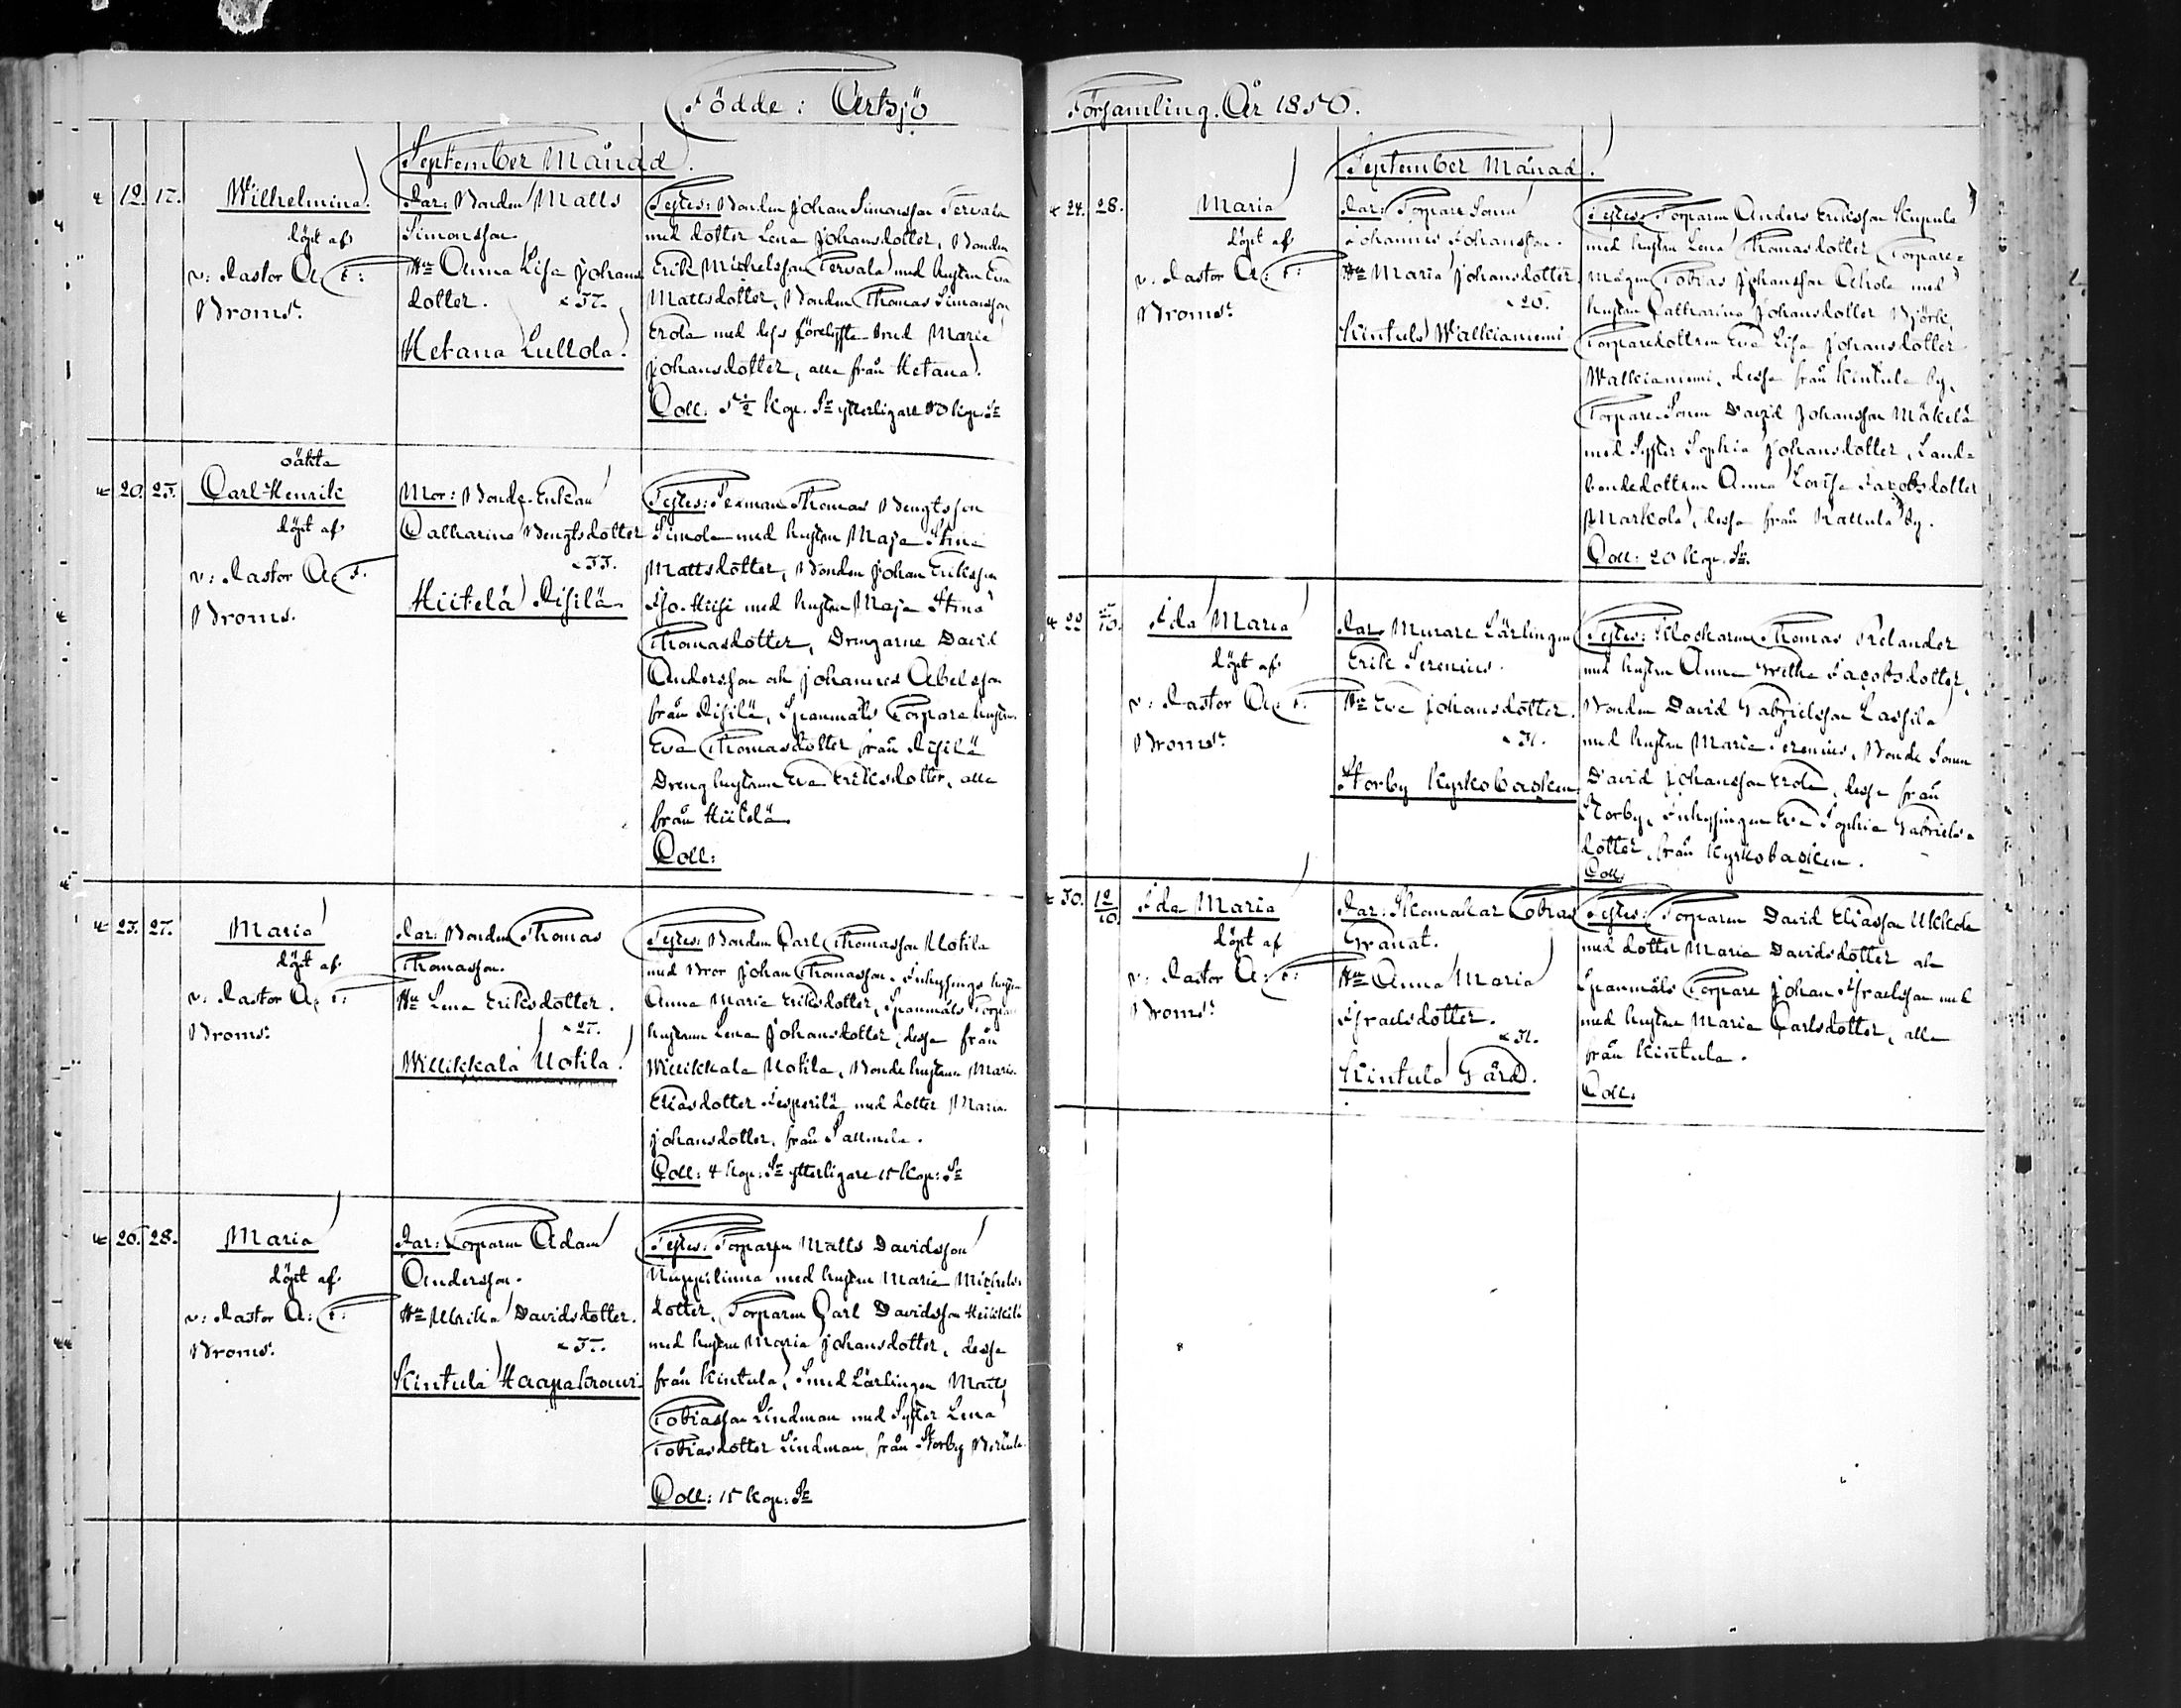 Födde: Artsjö
September Månad.
12. 17. Wilhelmina.
döpt af
v: Pastor A: F:
Broms.
Far: Bonden Matts
Simonsson
Hu Anna Lisa Johans
dotter.
Hetana Lullola.
Testes: Bonden Johan Simonsson Tervala
med dotter Lena Johansdotter, Bonden
Erik Michelsson Tervala med hustru Eva
Mattsdotter, Bonden Thomas Simonsson
Erola med dess förelyste brud Maria
Johansdotter, alla från Hetana.
Coll: Kop. Sr ytterligare Kop. Sr
oäkta
20. 25. Carl Henrik
döpt af
v: Pastor A: F.
Broms.
Mor: Bonde-Enkan
Catharina Bengtsdotter
Hiitelä Pisilä
Testes: Sexman Thomas Bengtsson
Simola med hustru Maja Stina
Mattsdotter, Bonden Johan Eriksson
Iso-Hiisi med hustru Maja Stina
Thomasdotter, Drengarne David
Andersson och Johannes Abelsson
från Pisilä, Spanmåls Torpare hustrun
Eva Thomasdotter från Pisilä
Dreng hustrun Eva Eriksdotter, alla
från Hiitelä
Coll:
27. Maria
döpt af
v: Pastor A: F:
Broms.
Far: Bonden Thomas
Thomasson.
Hu Lena Eriksdotter.
Willikkala Uotila.
Testes: Bonden Carl Thomasson Uotila
med Bror Johan Thomasson. Inhysings hustrun
Anna Maria Eriksdotter, Spanmåls Torpare
hustrun Lena Johansdotter, dessa från
Willikkala Uotila, Bonde hustrun Maria
Eliasdotter Jesperilä med dotter Maria
Johansdotter, från Sallmela.
Coll: 4 Kop: Sr ytterligare 15 Kop: Sr
26. 28. Maria
döpt af
v: Pastor A: F:
Broms.
Far: Torparen Adam
Andersson.
Hu Ulrika Davidsdotter.
Kintula Haapakrouvi
Testes: Torparen Matts Davidsson
med hustru Maria Michels
dotter, Torparen Carl Davidsson Heikkilä
med hustru Maria Johansdotter, dessa
från Kintula, Smed Lärlingen Matts
Tobiasson Lindman med Syster Lena
Tobiasdotter Lindman, från Storby
Coll: 15 Kop: Sr
Församling. År 1850.
September Månad.
24. 28. Maria
döpt af
v: Pastor A: F:
Broms.
Far: Torpare Sonen
Johannes Johansson.
Hu Maria Johansdotter
26.
Kintula Walkianiemi
Testes: Torparen Anders Eriksson
med hustru Lena Thomasdotter, Torpare-
mågen Tobias Johansson Ahola med
hustru Catharina Johansdotter Björk,
Torparedottren Eva Lisa Johansdotter
Walkianiemi, dessa från Kintula by,
Torpare-Sonen David Johansson Mäkelä
med Syster Sophia Johansdotter, Land-
bondedottren Anna Lovisa Jacobsdotter
Markola, dessa från Rattula by.
Coll: 20 Kop. Sr.
22 Ida Maria
döpt af
v: Pastor A: F:
Broms.
Far: Murare Lärlingen
Erik Serenius.
Hu Eva Johansdotter.
31.
Storby Kyrkobacken
Testes: Klockaren Thomas Relander
med hustru Anna Jacobsdotter,
Bonden David Gabrielsson Lassila
med hustru Maria Serenius, Bonde Sonen
David Johansson Erola, dessa från
Storby, Inhysingen Eva Sophia Gabriels-
dotter, från Kyrkobacken.
Coll:
30. 12/10. Ida Maria
döpt af
v: Pastor A: F:
Broms.
Far: Skomakar Tobias
Granat.
Hu Anna Maria
Israelsdotter.
31.
Kintula Gård.
Testes: Torparen David Eliasson Ukkola
med dotter Maria Davidsdotter och
Spanmåls Torpare Johan Israelsson med
med hustru Maria Carlsdotter, alla
från Kintula.
Coll.